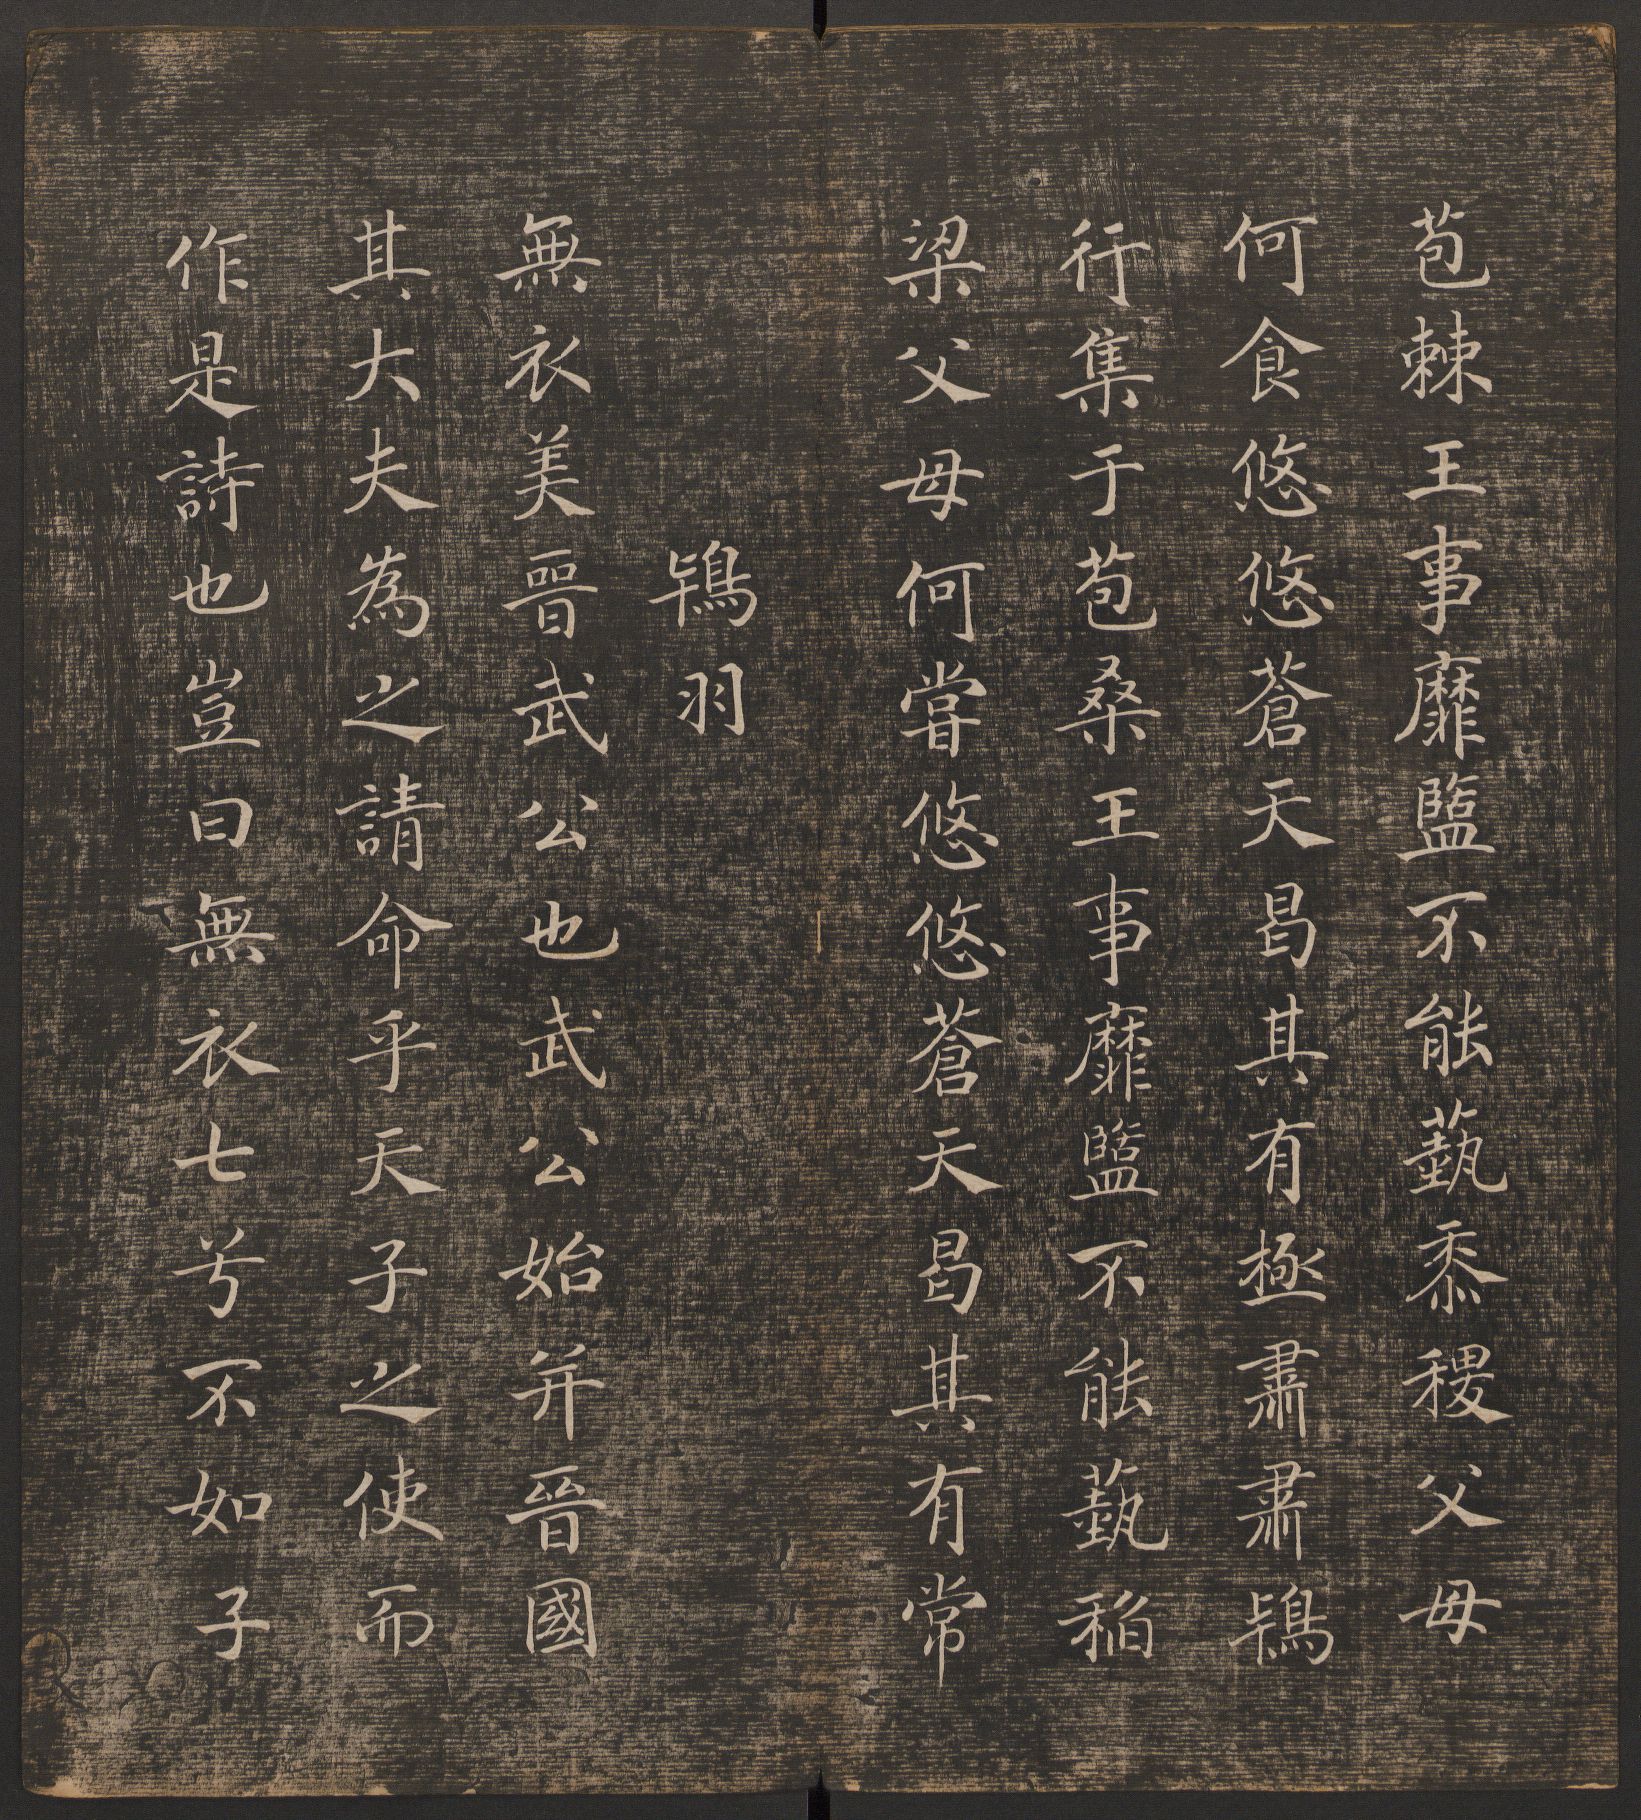 苞棘王事靡盬不能蓺黍稷父母
何食悠悠蒼天曷其有極肅肅鴇
行集于苞桑王事靡盬不能蓺稻
梁父母何嘗悠悠蒼天曷其有常
鴇羽
無衣美晉武公也武公始并晉國
其大夫為之請命乎天子之使而
作是詩也豈曰無衣七兮不如子